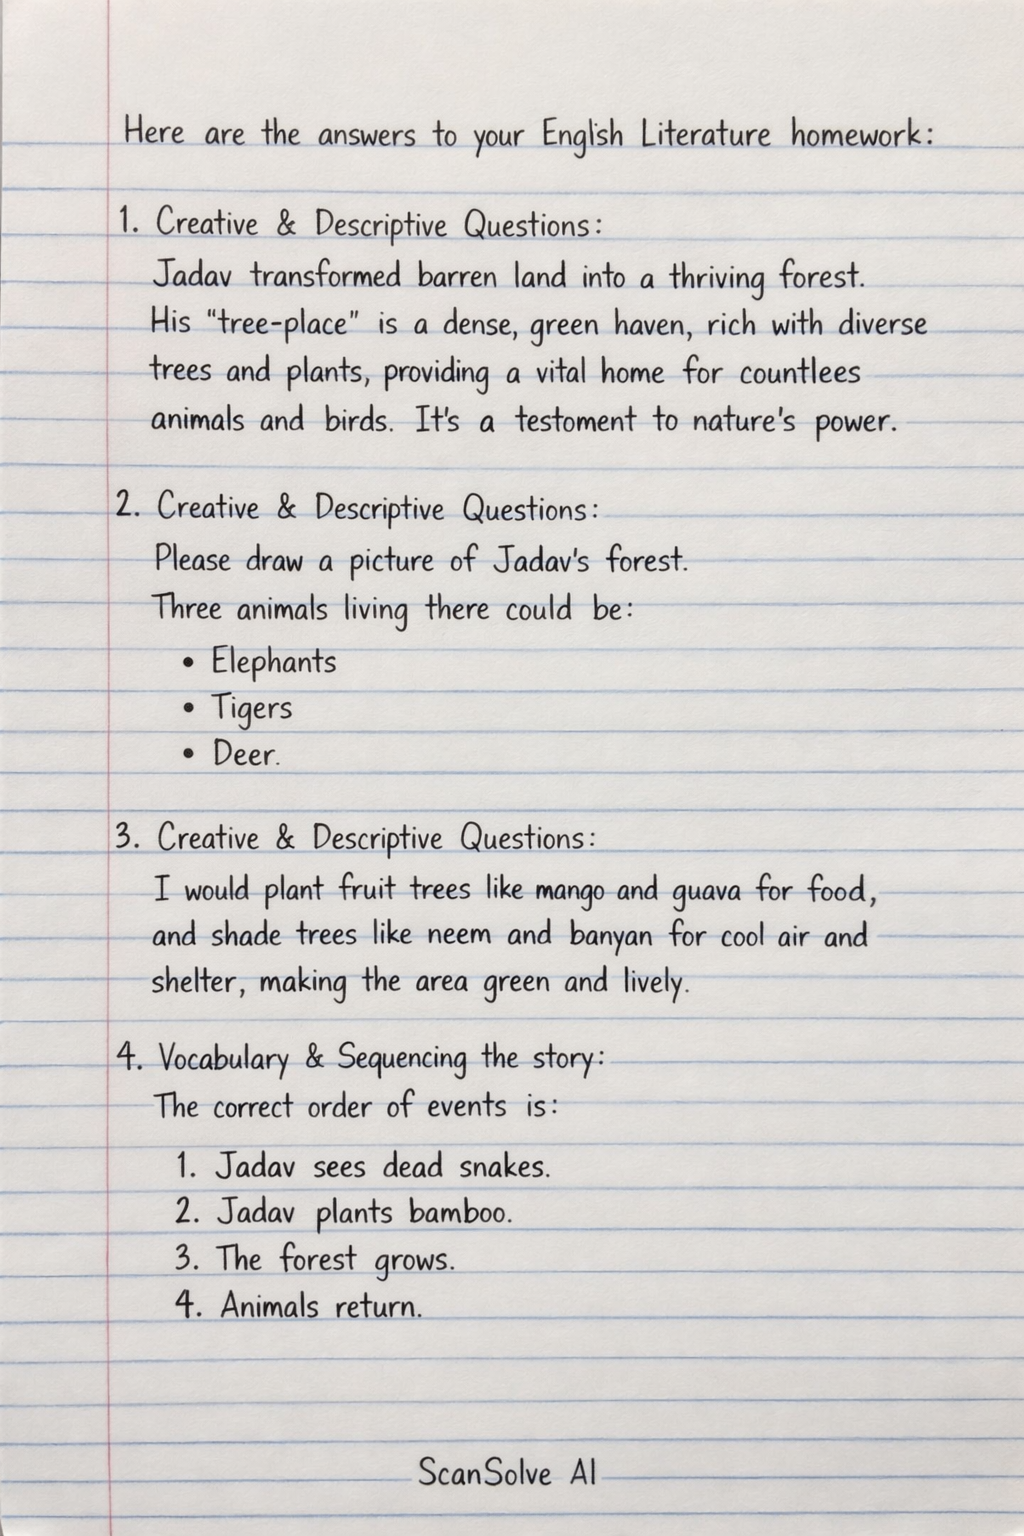 Here are the answers to your English Literature homework:
1. Creative & Descriptive Questions:
Jadav transformed barren land into a thriving forest.
His "tree-place" is a dense, green haven, rich with diverse
trees and plants, providing a vital home for countlees
animals and birds. It's a testoment to nature's power.
2. Creative & Descriptive Questions:
Please draw a picture of Jadav's forest.
Three animals living there could be:
• Elephants
• Tigers
• Deer.
3. Creative & Descriptive Questions:
I would plant fruit trees like mango and guava for food,
and shade trees like neem and banyan for cool air and
shelter, making the area green and lively.
4. Vocabulary & Sequencing the story:
The correct order of events is:
1. Jadav sees dead snakes.
2. Jadav plants bamboo.
3. The forest grows.
4. Animals return.
ScanSolve AI